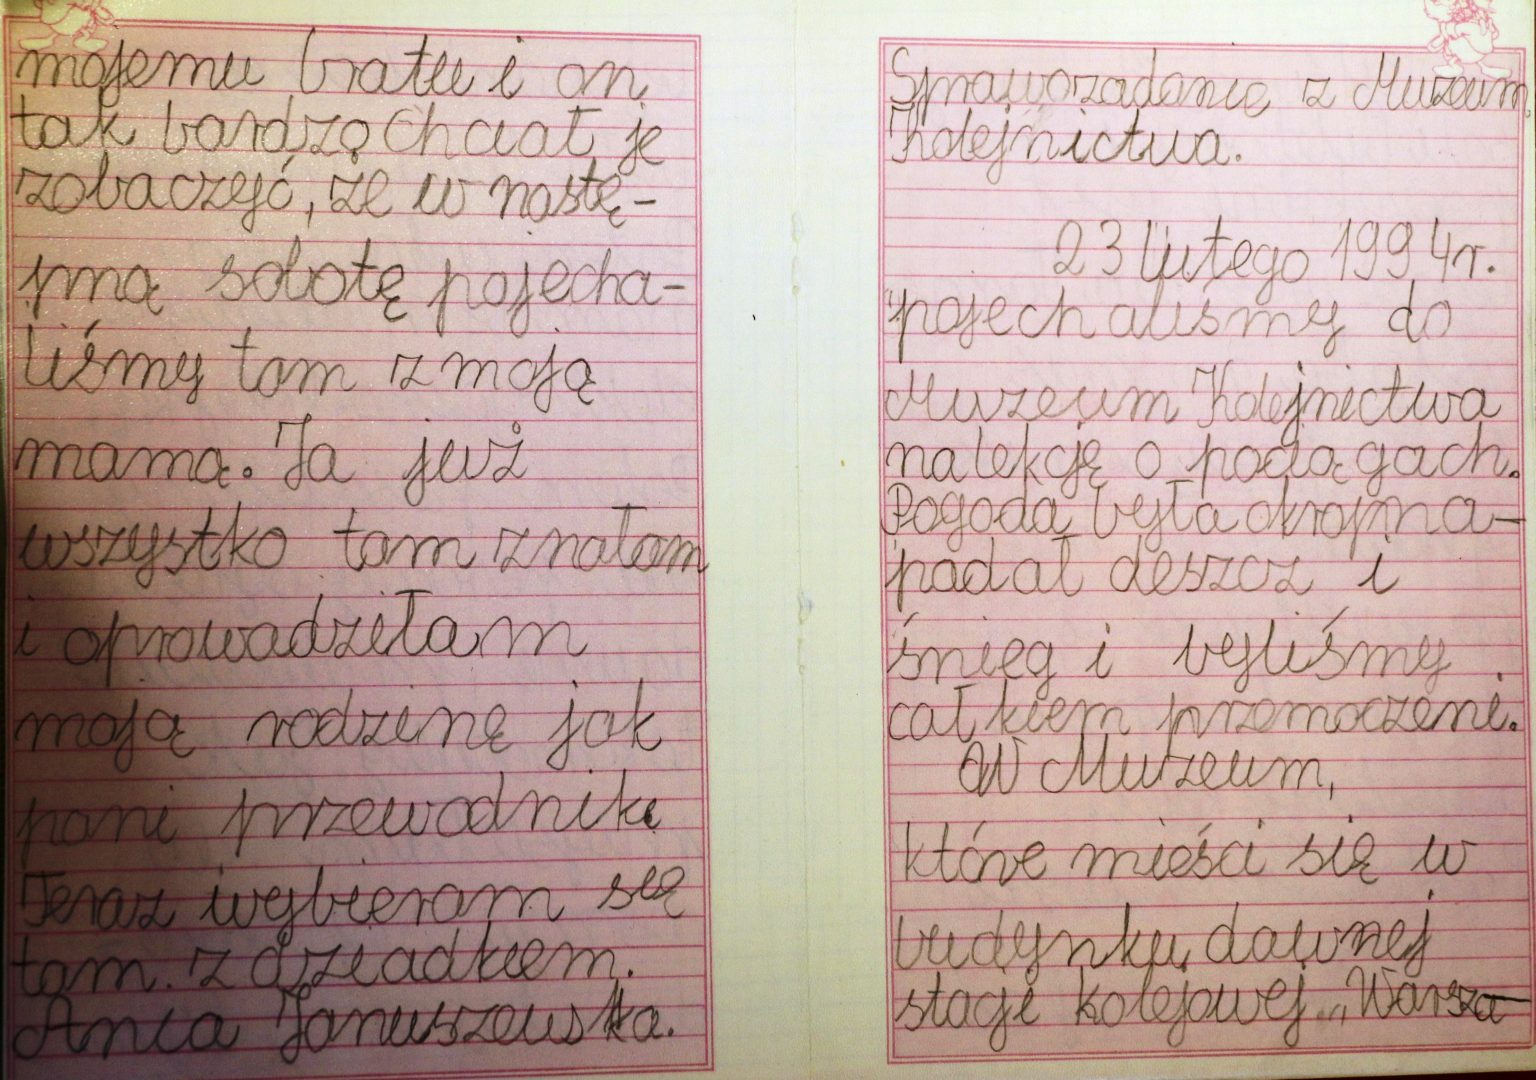 mojemu bratu i on
tak bardzo chciał je
zobaczyć, że w nastę-
pną sobotę pojecha-
liśmy tam z moją
mamą. Ja już
wszystko tam znałam
i oprowadziłam
moją rodzinę jak
pani przewodnik
Teraz wybieram się
tam. z dziadkiem.
Ania Januszewska.
Sprawozadanie z Muzeum
Kolejnictwa.
23 lutego 1994r.
pojechaliśmy do
Muzeum Kolejnictwa
na lekcję o pociągach.
Pogoda była okropna-
padał deszcz i
śnieg i byliśmy
całkiem przemoczeni.
W Muzeum,
które mieści się w
budynku dawnej
stacji kolejowej „Warsza-